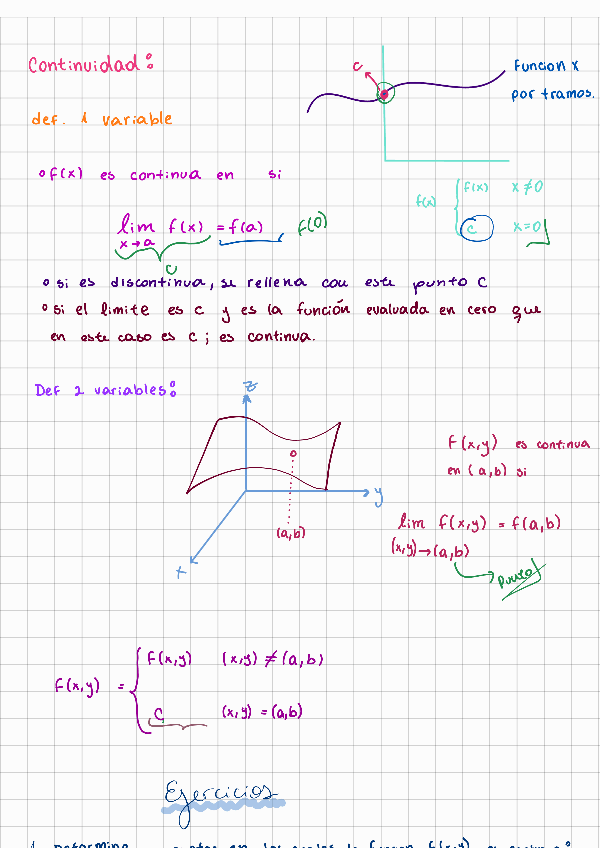 Continuidad:
c
Funcion x
por tramos.
def. 1 variable
f(x) es continua en si
f(x) { f(x) x≠0
c x=0
lim f(x) = f(a) f(0)
x→a
c
si es discontinua, se rellena con este punto C
si el limite es c y es la función evaluada en cero que
en este caso es c ; es continua.
Def 2 variables:
z
y
x
(a,b)
F(x,y) es continua
en (a,b) si
lim f(x,y) = f(a,b)
(x,y)→(a,b)
Punto
F(x,y) = { F(x,y) (x,y) ≠ (a,b)
C (x,y) = (a,b)
Ejercicios